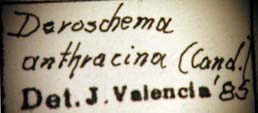 Deroschema
anthracina (Cand.)
Det. J. Valencia '85